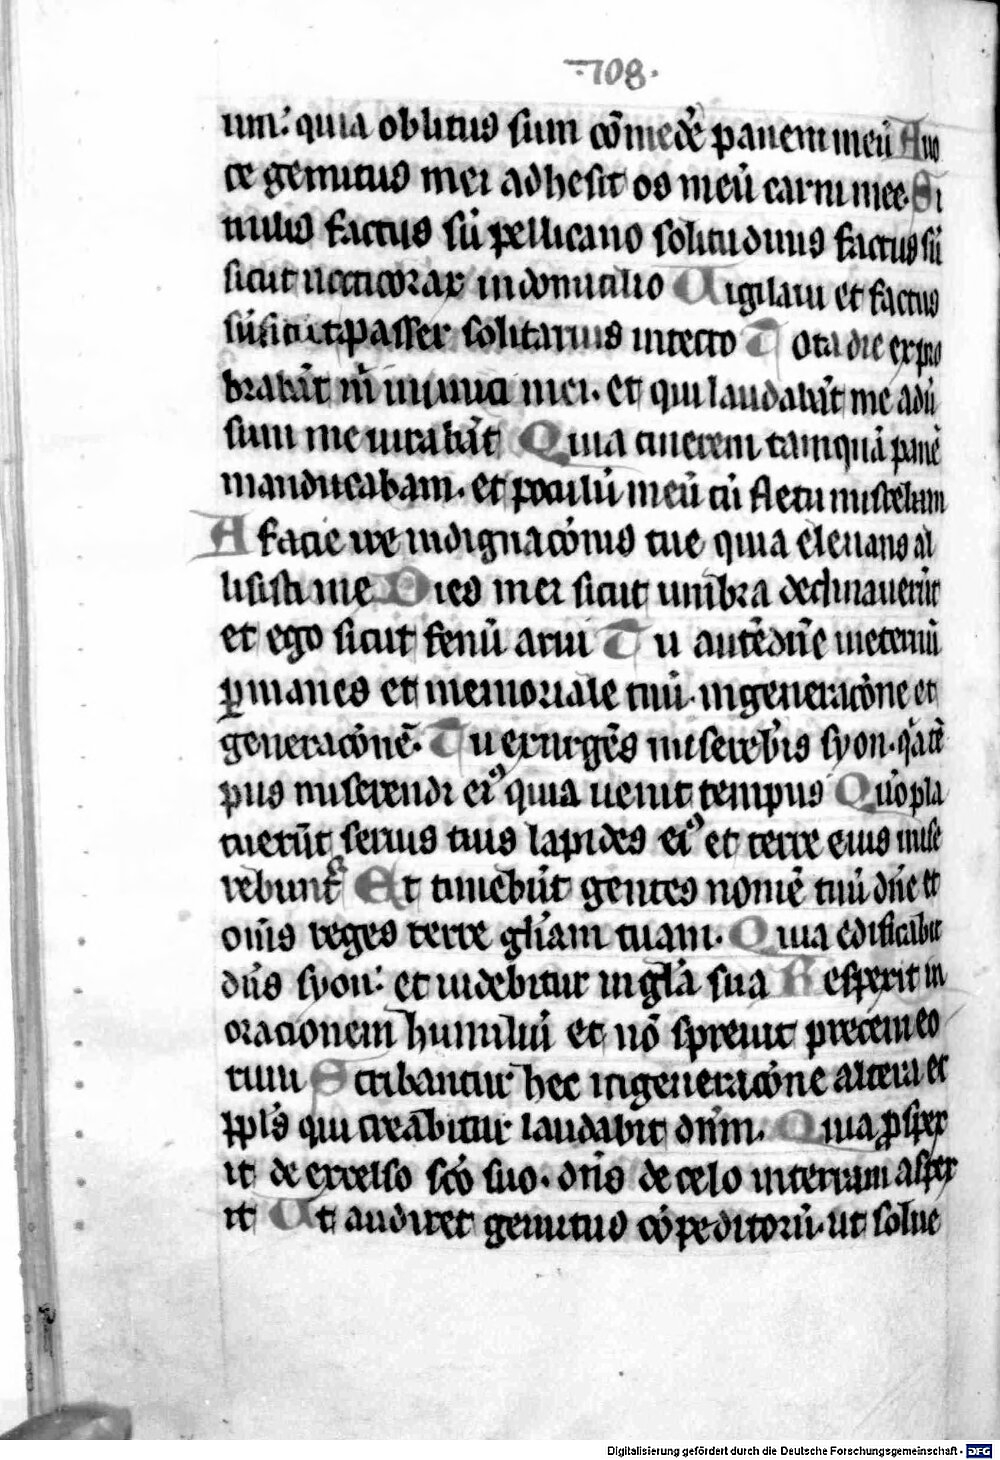 ·108·
um: quia oblitus sum cōmedẽ panem meū A uo
ce gemitus mei adhesit os meū carni mee. Si
milis factus sū pellicano solitudinis factus sū
sicut necticorax in domicilio Vigilaui et factus
sū sicut passer solitarius in tecto Tota die expro
brabāt m̄ inimici mei. et qui laudabāt me adū
sum me iurabāt Quia cinerem tamquā panē
manducabam. et poculū meū cū fletu miscebam
A facie ire indignacōnis tue quia eleuans al
lisisti me Dies mei sicut umbra declinauerūt
et ego sicut fenū arui Tu autē dn̄e in eternū
ꝑmanes et memoriale tuū. in generacōne et
generacōnē. Tu exurgēs misereb̄is syon. q̄a tē
pus miserendi eiꝰ quia uenit tempus Qm̄ pla
cuerūt seruis tuis lapides eiꝰ et terre eius mise
rebuntᷣ Et timebūt gentes nomē tuū dn̄e et
om̄s reges terre glīam tuam. Quia edificabit
dn̄s syon: et uidebitur in gl̄a sua Respexit in
orationem humiliū et nō spreuit precem eo
rum Scribantur hec in generacōne altera et
ppl̄s qui creabitur laudabit dn̄m. Quia ꝓspex
it de excelso sc̄o suo. dn̄s de celo in terram aspex
it Ut audiret gemitus cōpeditorū. ut solue
Digitalisierung gefördert durch die Deutsche Forschungsgemeinschaft - DFG